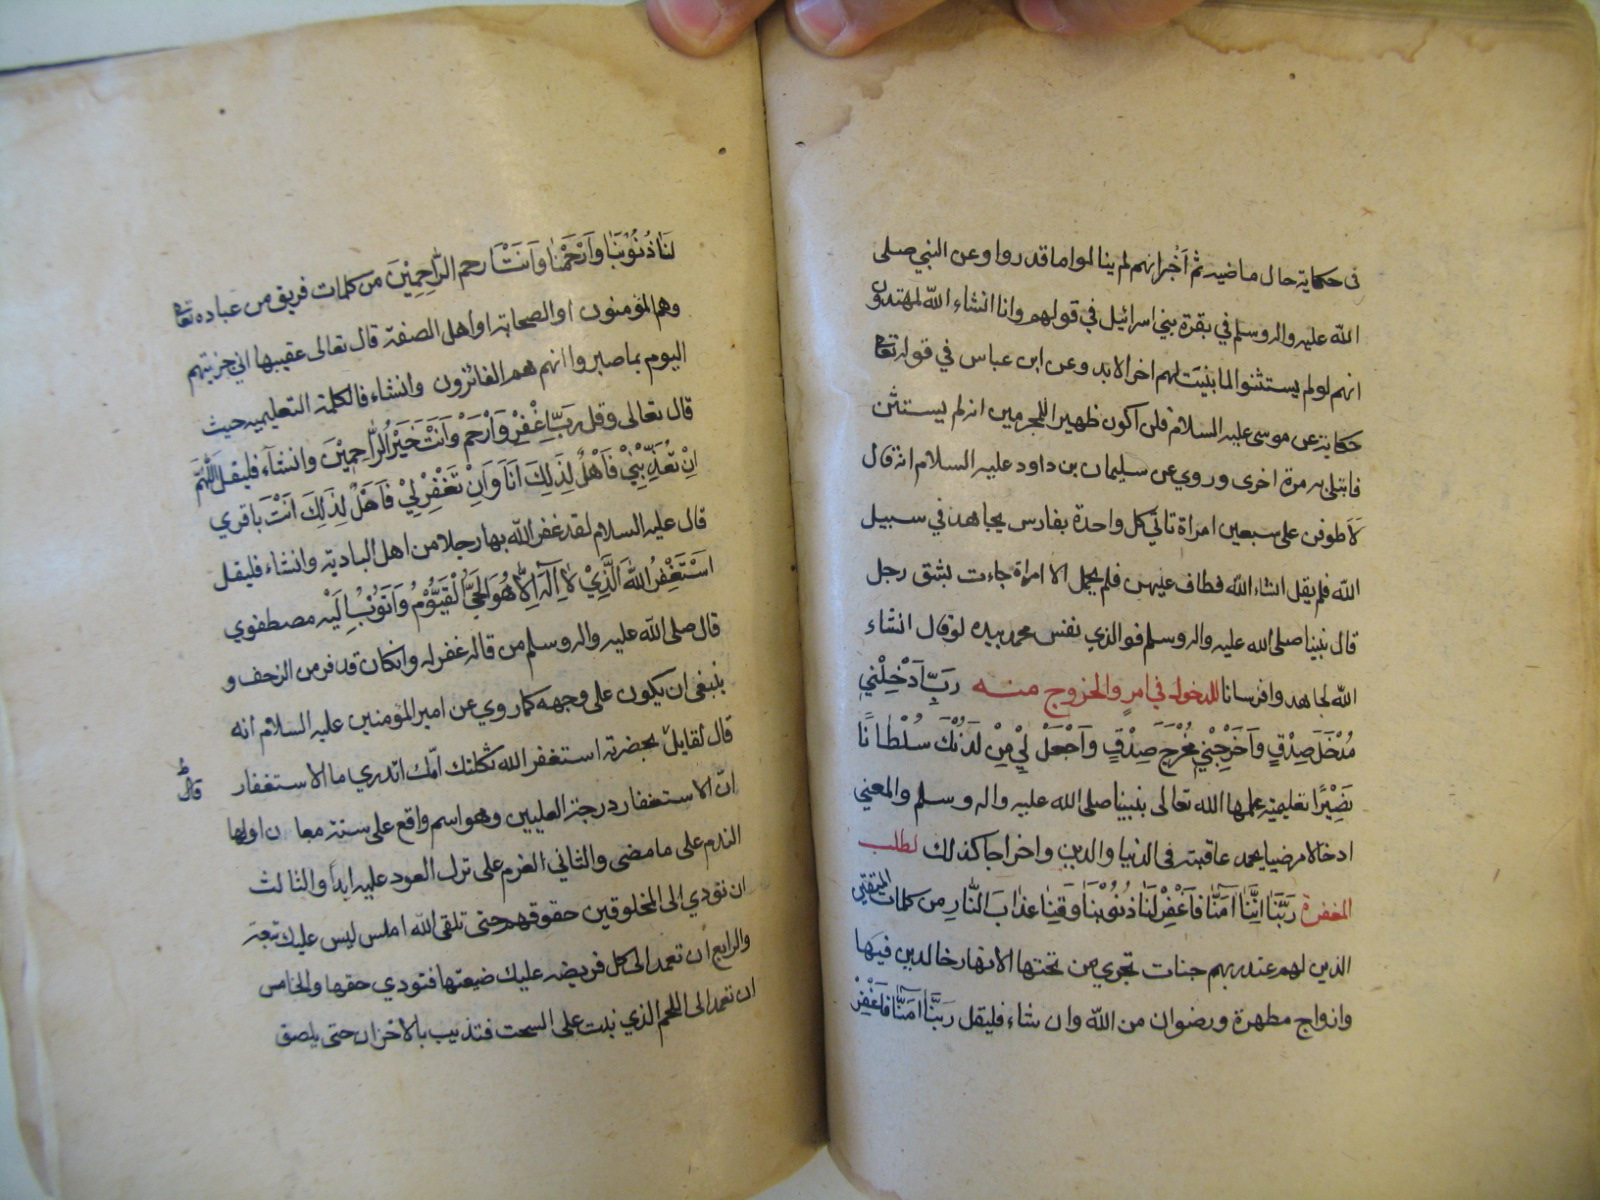 فى حكاية حال ماضيه ثم أخبر انهم لم ينالوا ما قدروا وعن النبي صلى
الله عليه واله وسلم في بقرة بني اسرائيل في قولهم وانا انشاء الله لمهتدون
انهم لو لم يستثنوا لما بنيت لهم اخر الابد وعن ابن عباس في قوله تعالى
حكاية عن موسى عليه السلام فلن اكون ظهيرا للمجرمين انه لم يستثن
فابتلى به مرة اخرى وروي عن سليمان بن داود عليه السلام انه قال
لاطوفن على سبعين امراة تاتى كل واحدة بفارس يجاهد في سبيل
الله فلم يقل انشاء الله فطاف عليهن فلم يحمل الا امراة جاءت بشق رجل
قال نبينا صلى الله عليه واله وسلم فوالذي نفس محمد بيده لو قال انشاء
الله لجاهدوا فرسانا للدخول في امر والخروج منه رَبِّ اَدْخِلْنِي
مُدْخَلَ صِدْقٍ وَاَخْرِجْنِي مُخْرَجَ صِدْقٍ وَاَجْعَلْ لِي مِنْ لَدُنْكَ سُلْطَانًا
نَصِيْرًا تعليمية علمها الله تعالى نبينا صلى الله عليه واله وسلم والمعني
ادخالا مرضيا يحمد عاقبته فى الدنيا والدين واخراجا كذلك لطلب
المغفرة رَبَّنَا اِنَّنَا آمَنَّا فَاغْفِرْ لَنَا ذُنُوْبَنَا وَقِنَا عَذابَ النَّارِ من كلمات المتقين
الذين لهم عند ربهم جنات تجري من تحتها الانهار خالدين فيها
وازواج مطهرة ورضوان من الله وان شاء فليقل رَبَّنَا آمَنَّا فَاغْفِرْ
لَنَا ذُنُوْبَنَا وَاَرْحَمْنَا وَاَنْتَ اَرحم الرَّاحِمِيْنَ من كلمات فريق من عباده تعالى
وهم المؤمنون او الصحابة او اهل الصفة قال تعالى عقيبها اني جزيتهم
اليوم بما صبروا انهم هم الفائزون وانشاء فالكلمة التعليميه حيث
قال تعالى وقل رَبِّ اِغْفِرْ وَاَرْحَمْ وَاَنْتَ خَيْرُ الرَّاحِمِيْنَ وانشاء فليقل اَللّٰهُمَّ
اِنْ تُعَذِّبْنِيْ فَاَهْلٌ لِذَلِكَ اَنَا وَاَنِْ تَغْفِرْ لِيْ فَاَهْلٌ لِذَلِكَ اَنْتَ باقري
قال عليه السلام لقد غفر الله بها رجلا من اهل البادية وانشاء فليقل
اَسْتَغْفِرُ اللهَ الَّذِيْ لاٰ اِلَهَ اِلاّٰ هُوَ الْحَيُّ الْقَيُّوْمُ وَاَتُوْبُ اِلَيْهِ مصطفوي
قال صلى الله عليه واله وسلم من قاله غفر له وانكان قد فر من الزحف و
ينبغى ان يكون على وجهه كما روي عن امير المؤمنين عليه السلام انه
قال لقايل بحضرته استغفر الله ثكلتك امّك اتدري ما الاستغفار
قال ط
انّ الاستغفار درجة العليين وهو اسم واقع على ستة معان اولها
الندم على ما مضى والثاني العزم على ترك العود عليه ابداً والثالث
ان تؤدي الى المخلوقين حقوقهم حتى تلقى الله املس ليس عليك تبعة
والرابع ان تعمد الى كل فريضه عليك ضيعتها فتودي حقها والخامس
ان تعمد الى اللحم الذي نبت على السحت فتذيب بالاحزان حتى يلصق